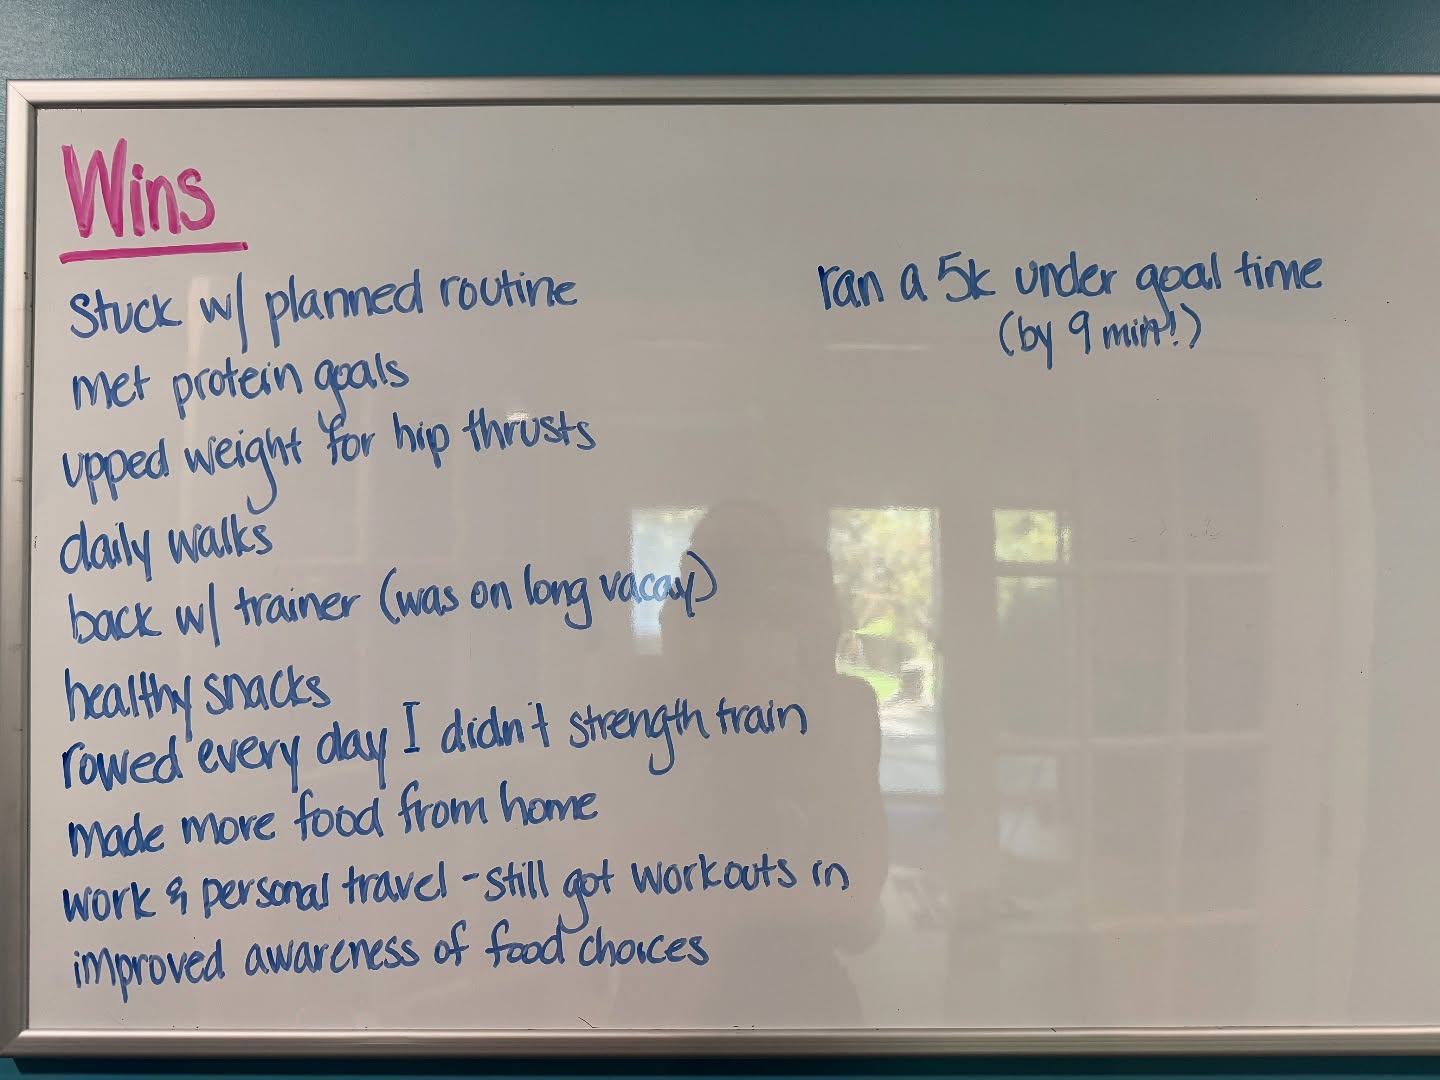 Wins
Stuck w/ planned routine
met protein goals
upped weight for hip thrusts
daily walks
back w/ trainer (was on long vacay)
healthy snacks
rowed every day I didn't strength train
made more food from home
work & personal travel - still got workouts in
improved awareness of food choices
ran a 5k under goal time
(by 9 min!)